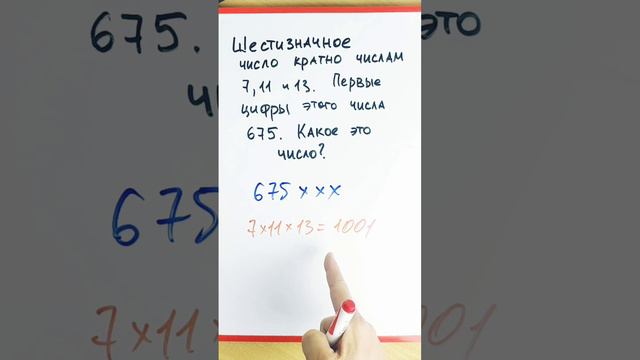 Шестизначное
число кратно числам
7, 11 и 13. Первые
цифры этого числа
675. Какое это
число?
675 x x x
7x11x13 = 1001